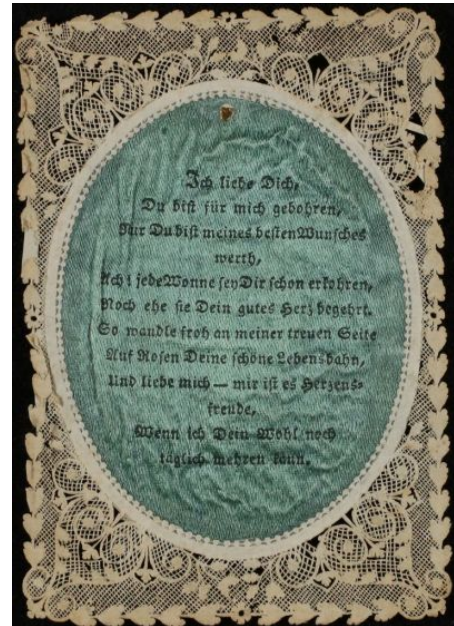 Ich liebe Dich,
Du bist für mich gebohren,
Nur Du bist meines besten Wunsches
werth,
Ach! jede Wonne sey Dir schon erkohren,
Noch ehe sie Dein gutes Herz begehrt.
So wandle froh an meiner treuen Seite
Auf Rosen Deine schöne Lebensbahn,
Und liebe mich — mir ist es Herzens-
freude,
Wenn ich Dein Wohl noch
täglich mehren kann.